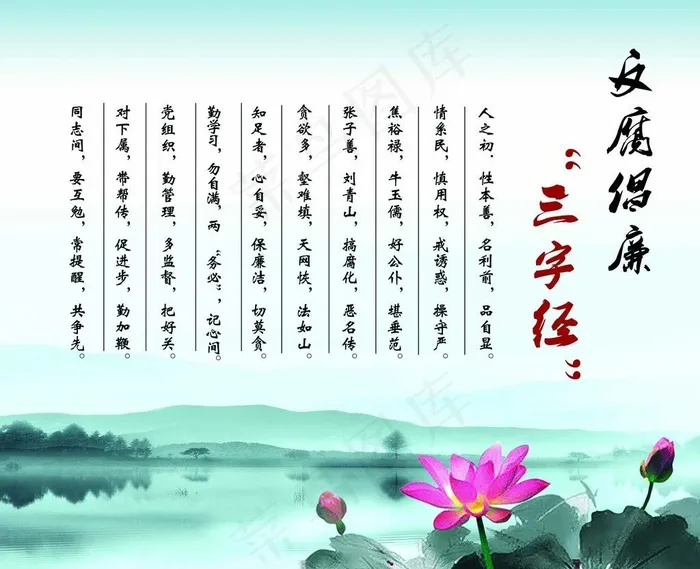 反腐倡廉
“三字经”
人之初，性本善，名利前，品自显。
情系民，慎用权，戒诱惑，操守严。
焦裕禄，牛玉儒，好公仆，堪垂范。
张子善，刘青山，搞腐化，恶名传。
贪欲多，壑难填，天网恢，法如山。
知足者，心自妥，保廉洁，切莫贪。
勤学习，勿自满，两“务必”，记心间。
党组织，勤管理，多监督，把好关。
对下属，带帮传，促进步，勤加鞭。
同志间，要互勉，常提醒，共争先。